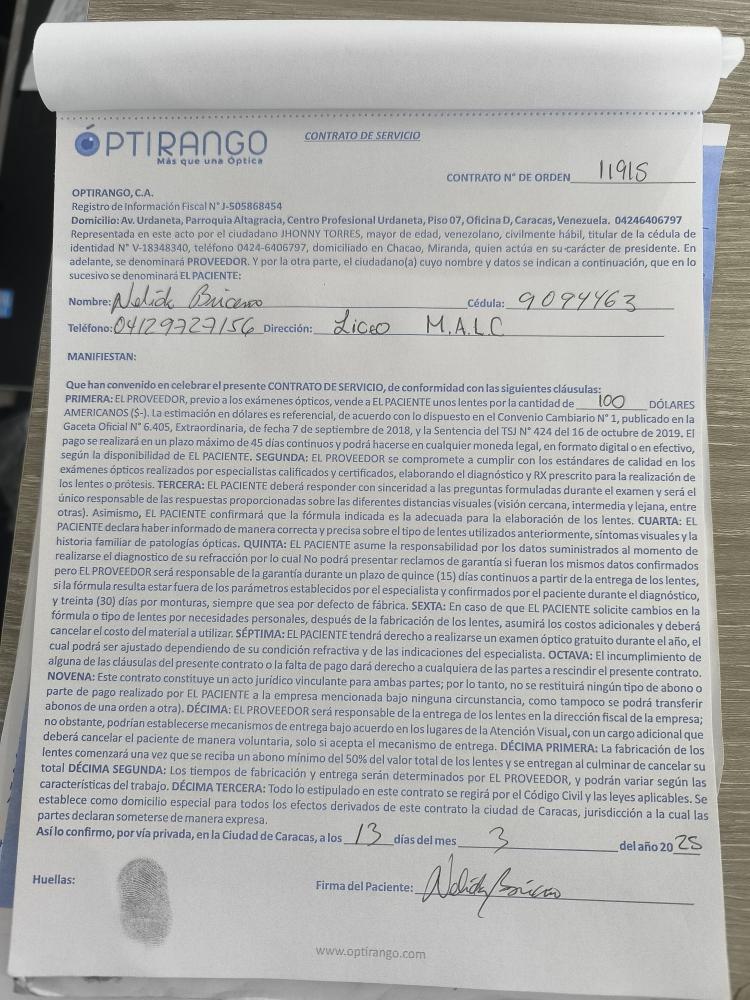 ÓPTIRANGO
Más que una Óptica
CONTRATO DE SERVICIO
CONTRATO N° DE ORDEN 11915
OPTIRANGO, C.A.
Registro de Información Fiscal N° J-505868454
Domicilio: Av. Urdaneta, Parroquia Altagracia, Centro Profesional Urdaneta, Piso 07, Oficina D, Caracas, Venezuela. 04246406797
Representada en este acto por el ciudadano JHONNY TORRES, mayor de edad, venezolano, civilmente hábil, titular de la cédula de
identidad N° V-18348340, teléfono 0424-6406797, domiciliado en Chacao, Miranda, quien actúa en su carácter de presidente. En
adelante, se denominará PROVEEDOR. Y por la otra parte, el ciudadano(a) cuyo nombre y datos se indican a continuación, que en lo
sucesivo se denominará EL PACIENTE:
Nombre: Nelida Briceno Cédula: 9094463
Teléfono: 04129727156 Dirección: Liceo M.A.L.C
MANIFIESTAN:
Que han convenido en celebrar el presente CONTRATO DE SERVICIO, de conformidad con las siguientes cláusulas:
PRIMERA: EL PROVEEDOR, previo a los exámenes ópticos, vende a EL PACIENTE unos lentes por la cantidad de 100 DÓLARES
AMERICANOS ($-). La estimación en dólares es referencial, de acuerdo con lo dispuesto en el Convenio Cambiario N° 1, publicado en la
Gaceta Oficial N° 6.405, Extraordinaria, de fecha 7 de septiembre de 2018, y la Sentencia del TSJ N° 424 del 16 de octubre de 2019. El
pago se realizará en un plazo máximo de 45 días continuos y podrá hacerse en cualquier moneda legal, en formato digital o en efectivo,
según la disponibilidad de EL PACIENTE. SEGUNDA: EL PROVEEDOR se compromete a cumplir con los estándares de calidad en los
exámenes ópticos realizados por especialistas calificados y certificados, elaborando el diagnóstico y RX prescrito para la realización de
los lentes o prótesis. TERCERA: EL PACIENTE deberá responder con sinceridad a las preguntas formuladas durante el examen y será el
único responsable de las respuestas proporcionadas sobre las diferentes distancias visuales (visión cercana, intermedia y lejana, entre
otras). Asimismo, EL PACIENTE confirmará que la fórmula indicada es la adecuada para la elaboración de los lentes. CUARTA: EL
PACIENTE declara haber informado de manera correcta y precisa sobre el tipo de lentes utilizados anteriormente, síntomas visuales y la
historia familiar de patologías ópticas. QUINTA: EL PACIENTE asume la responsabilidad por los datos suministrados al momento de
realizarse el diagnostico de su refracción por lo cual No podrá presentar reclamos de garantía si fueran los mismos datos confirmados
pero EL PROVEEDOR será responsable de la garantía durante un plazo de quince (15) días continuos a partir de la entrega de los lentes,
si la fórmula resulta estar fuera de los parámetros establecidos por el especialista y confirmados por el paciente durante el diagnóstico,
y treinta (30) días por monturas, siempre que sea por defecto de fábrica. SEXTA: En caso de que EL PACIENTE solicite cambios en la
fórmula o tipo de lentes por necesidades personales, después de la fabricación de los lentes, asumirá los costos adicionales y deberá
cancelar el costo del material a utilizar. SÉPTIMA: EL PACIENTE tendrá derecho a realizarse un examen óptico gratuito durante el año, el
cual podrá ser ajustado dependiendo de su condición refractiva y de las indicaciones del especialista. OCTAVA: El incumplimiento de
alguna de las cláusulas del presente contrato o la falta de pago dará derecho a cualquiera de las partes a rescindir el presente contrato.
NOVENA: Este contrato constituye un acto jurídico vinculante para ambas partes; por lo tanto, no se restituirá ningún tipo de abono o
parte de pago realizado por EL PACIENTE a la empresa mencionada bajo ninguna circunstancia, como tampoco se podrá transferir
abonos de una orden a otra). DÉCIMA: EL PROVEEDOR será responsable de la entrega de los lentes en la dirección fiscal de la empresa;
no obstante, podrían establecerse mecanismos de entrega bajo acuerdo en los lugares de la Atención Visual, con un cargo adicional que
deberá cancelar el paciente de manera voluntaria, solo si acepta el mecanismo de entrega. DÉCIMA PRIMERA: La fabricación de los
lentes comenzará una vez que se reciba un abono mínimo del 50% del valor total de los lentes y se entregan al culminar de cancelar su
total DÉCIMA SEGUNDA: Los tiempos de fabricación y entrega serán determinados por EL PROVEEDOR, y podrán variar según las
características del trabajo. DÉCIMA TERCERA: Todo lo estipulado en este contrato se regirá por el Código Civil y las leyes aplicables. Se
establece como domicilio especial para todos los efectos derivados de este contrato la ciudad de Caracas, jurisdicción a la cual las
partes declaran someterse de manera expresa.
Así lo confirmo, por vía privada, en la Ciudad de Caracas, a los 13 días del mes 3 del año 2025
Huellas:
Firma del Paciente: Nelida Briceno
www.optirango.com